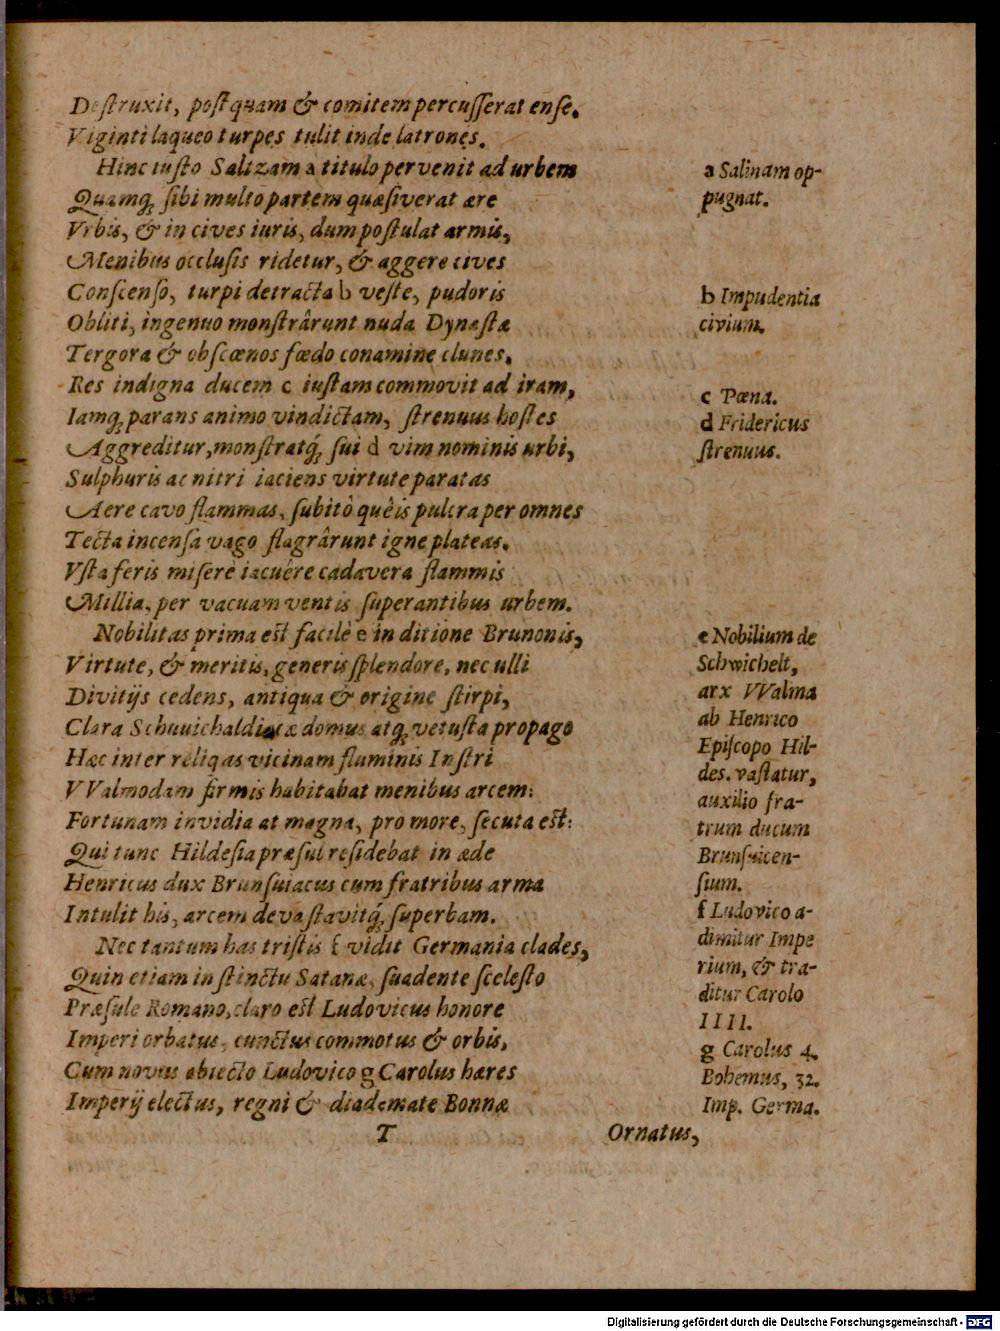 Deſtruxit, poſtquam & comitem percuſſerat enſe.
Viginti laqueo turpes tulit inde latrones.
Hinc iuſto Salizam a titulo pervenit ad urbem
Quamq; ſibi multo partem quæſiverat ære
Vrbis, & in cives iuris, dum poſtulat armis,
Menibus occluſis ridetur, & aggere cives
Conſcenſo, turpi detracta b veſte, pudoris
Obliti, ingenuo monſtrârunt nuda Dynaſtæ
Tergora & obſcœnos fœdo conamine clunes.
Res indigna ducem c iuſtam commovit ad iram,
Iamq; parans animo vindictam, ſtrenuus hoſtes
Aggreditur, monſtratq́; ſui d vim nominis urbi,
Sulphuris ac nitri iaciens virtute paratas
Aere cavo flammas, ſubitò quêis pulcra per omnes
Tecta incenſa vago flagrârunt igne plateas.
Vſta feris miſerè iacuêre cadavera flammis
Millia, per vacuam ventis ſuperantibus urbem.
Nobilitas prima eſt facilè e in ditione Brunonis,
Virtute, & meritis, generis ſplendore, nec ulli
Divitijs cedens, antiqua & origine ſtirpi,
Clara Schuuichaldiacæ domus atq; vetuſta propago
Hæc inter reliqas vicinam fluminis Inſtri
VValmodam firmis habitabat menibus arcem:
Fortunam invidia at magna, pro more, ſecuta eſt:
Qui tunc Hildeſia præſul reſidebat in æde
Henricus dux Brunſuiacus cum fratribus arma
Intulit his, arcem devaſtavitq́; ſuperbam.
Nec tantum has triſtis f vidit Germania clades,
Quin etiam inſtinctu Satanæ, ſuadente ſceleſto
Præſule Romano, claro eſt Ludovicus honore
Imperi orbatus, cunctus commotus & orbis,
Cum novus abiecto Ludovico g Carolus hæres
Imperij electus, regni & diademate Bonnæ
T
Ornatus,
a Salinam op-
pugnat.
b Impudentia
civium.
c Pœna.
d Fridericus
ſtrenuus.
e Nobilium de
Schwichelt,
arx VValma
ab Henrico
Epiſcopo Hil-
des. vaſtatur,
auxilio fra-
trum ducum
Brunſuicen-
ſium.
f Ludovico a-
dimitur Impe
rium, & tra-
ditur Carolo
IIII.
g Carolus 4.
Bohemus, 32.
Imp. Germa.
Digitalisierung gefördert durch die Deutsche Forschungsgemeinschaft - DFG